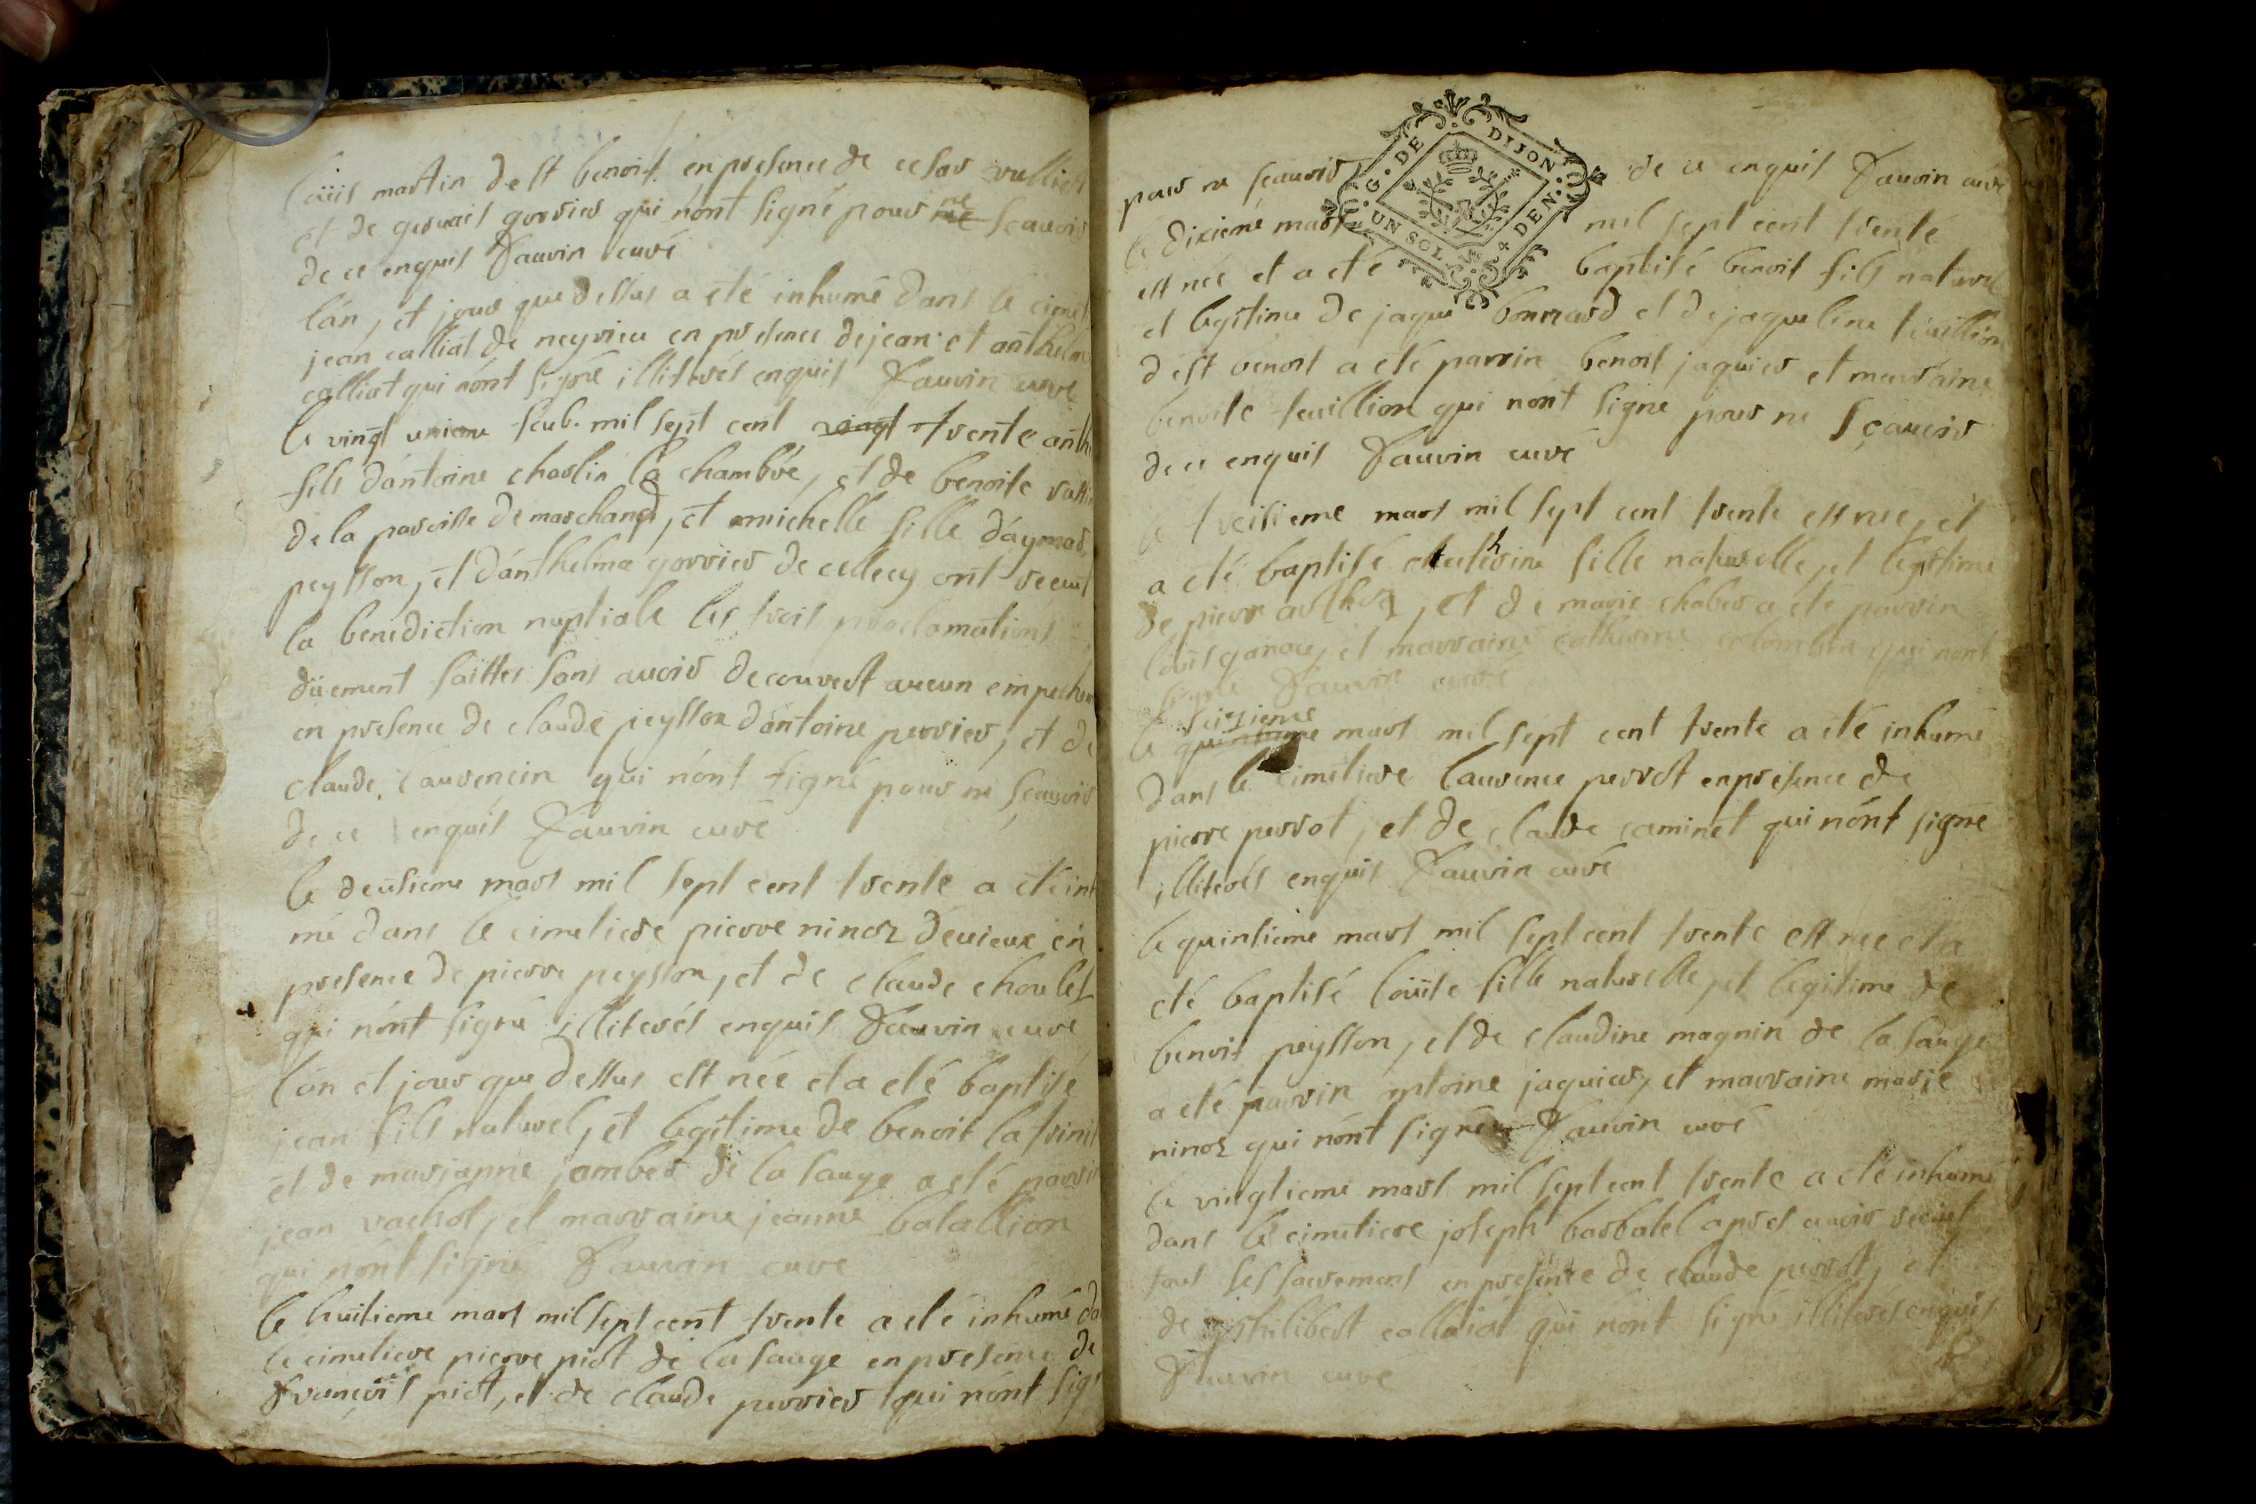 loüis martin de st benoit en presence de cesar vullier
et de gervais gorrier qui n'ont signé pour ne scavoir
de ce enquis Fauvin curé
l'an, et jour que dessus a eté inhumé dans le cimet
jean calliat de neyrieu en presence de jean et anthelm
calliat qui n'ont signé illiterés enquis Fauvin curé
le vingt unieme feub. mil sept cent vingt trente anth
fils d'antoine charlin la chambre, et de benoite
de la paroisse de marchand, et michelle fille d'aymar
peysson, et d'anthelma gorrier de cellecy ont receut
la benediction nuptiale les trois proclamations
düement faittes sans avoir decouvert aucun empechem
en presence de claude peysson d'antoine perrier, et de
claude laurencin qui n'ont signé pour ne sçavoir
de ce enquis Fauvin curé
le deusieme mars mil sept cent trente a eté inh
mé dans le cimetiere pierre ninoz d'evieux en
presence de pierre peysson, et de claude choulet
qui n'ont signé illiterés enquis Fauvin curé
l'an et jour que dessus est née et a eté baptisé
jean fils naturel, et legitime de benoit la trini
et de marjanne jamber de la sauge a eté parrin
jean vachot, et marraine jeanne batallion
qui n'ont signé Fauvin curé
le huitieme mars mil sept cent trente a eté inhumé da
le cimetiere pierre piot de la sauge en presence de
François piot, et de claude perrier qui n'ont sig
G. DE DIJON
UN SOL 4 DEN.
pour ne scavoir de ce enquis Fauvin curé
le dixieme mars mil sept cent trente
est née et a eté baptisé benoit fils naturel
et legitime de jaque bonnard et de jaqueline teuillion
de st benoit a eté parrin benoit jaquier et marraine
benoite teuillion qui n'ont signé pour ne sçavoir
de ce enquis Fauvin curé
le treisieme mars mil sept cent trente est née, et
a eté baptisé catherine fille naturelle, et legitime
de pierre, et de marie chaber a eté parrin
loüis ganou, et marraine catherine colomban qui n'ont
signé Fauvin curé
seisieme
le quinsieme mars mil sept cent trente a eté inhumé
dans le cimetiere laurence perrot en presence de
pierre perrot, et de claude caminet qui n'ont signé
illiterés enquis Fauvin curé
le quinsieme mars mil sept cent trente est née et a
eté baptisé loüise fille naturelle, et legitime de
benoit peysson, et de claudine magnin de la sauge
a eté parrin antoine jaquier, et marraine marie
ninoz qui n'ont signé Fauvin curé
le vingtieme mars mil sept cent trente a eté inhumé
dans le cimetiere joseph barbatel apres avoir receut
tous les sacremens en presence de claude perrot, et
de philibert callaiat qui n'ont signé illiterés enquis
Fauvin curé